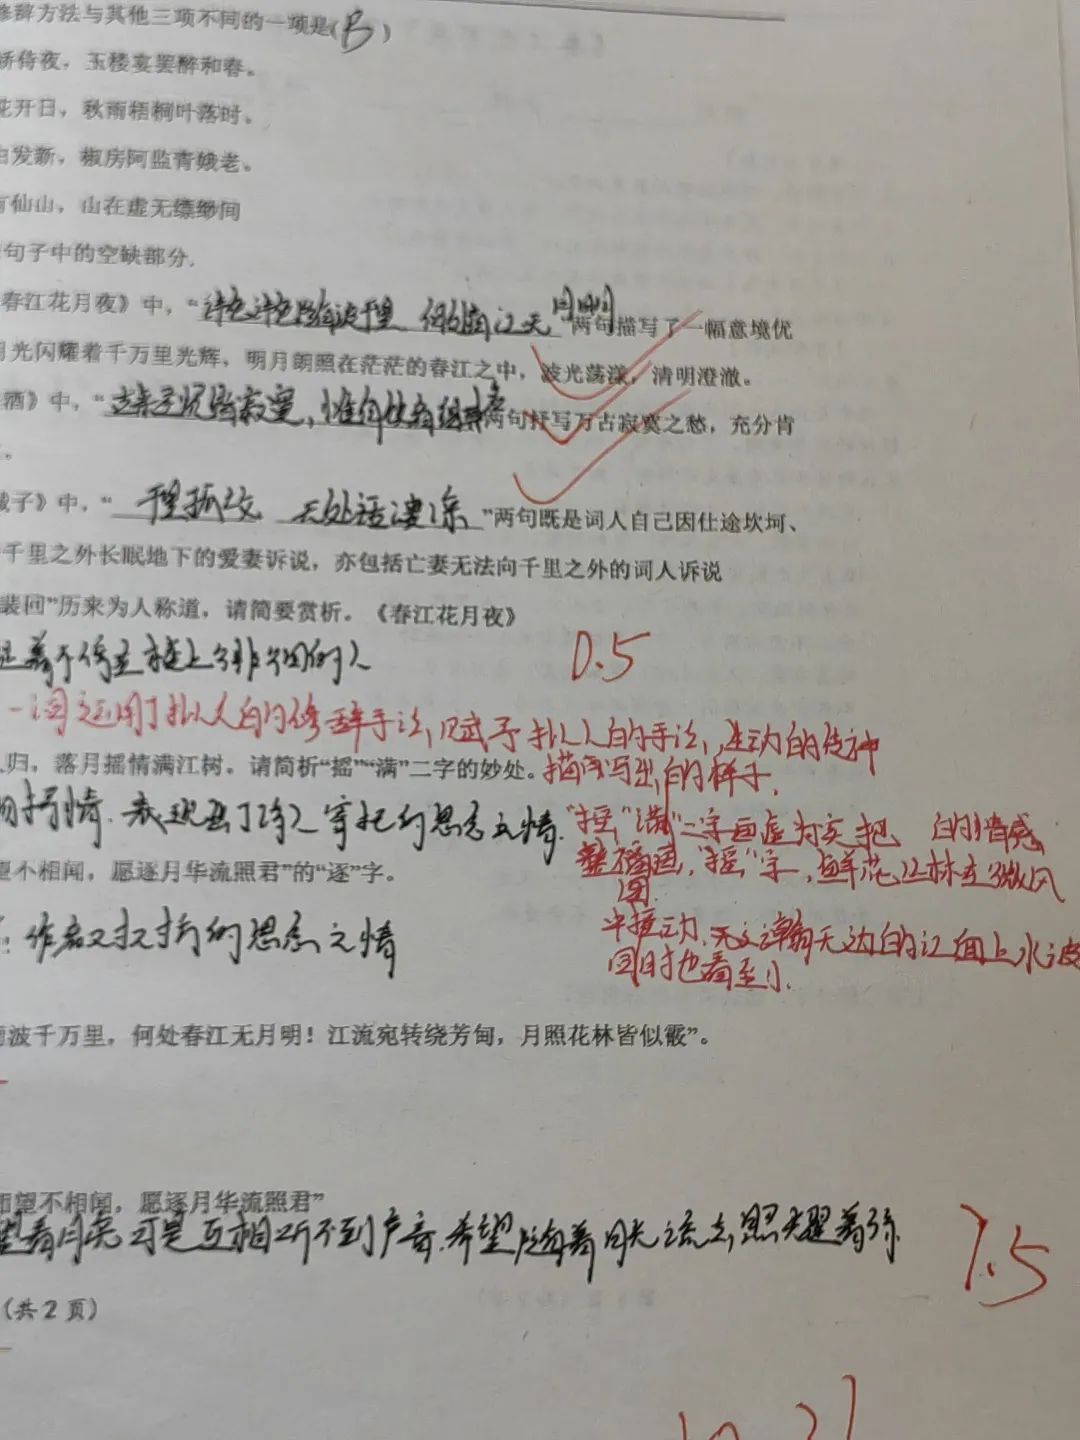 修辞方法与其他三项不同的一项是(B)
娇侍夜，玉楼宴罢醉和春。
花开日，秋雨梧桐叶落时。
白发新，椒房阿监青娥老。
有仙山，山在虚无缥缈间
句子中的空缺部分.
春江花月夜》中，“滟滟随波千里 何处江天月明”两句描写了一幅意境优
月光闪耀着千万里光辉，明月朗照在茫茫的春江之中，波光荡漾，清明澄澈。
酒》中，“寂寞，惟有饮者留其名两句抒写万古寂寞之愁，充分肯
。
城子》中，“千里孤坟 无处话凄凉”两句既是词人自己因仕途坎坷、
千里之外长眠地下的爱妻诉说，亦包括亡妻无法向千里之外的词人诉说
裴回”历来为人称道，请简要赏析。《春江花月夜》
着于倚立楼上徘徊的人
0.5
一词运用了拟人的修辞手法，赋予拟人的手法，生动的传神
描写出的样子.
归，落月摇情满江树。请简析“摇”“满”二字的妙处。
抒情.表现出了诗人寄托的思念之情.
“摇”“满”二字画虚为实把 的情感
图画，“摇”字，鲜花江林在微风
中摇动.无边的江面上水波
同时也看至小.
望不相闻，愿逐月华流照君”的“逐”字。
作者又抒的思念之情
随波千万里，何处春江无月明！江流宛转绕芳甸，月照花林皆似霰”。
相望不相闻，愿逐月华流照君”
望着月亮可是互相听不到声音.希望随着月光流去，照耀着你.
7.5
（共2页）